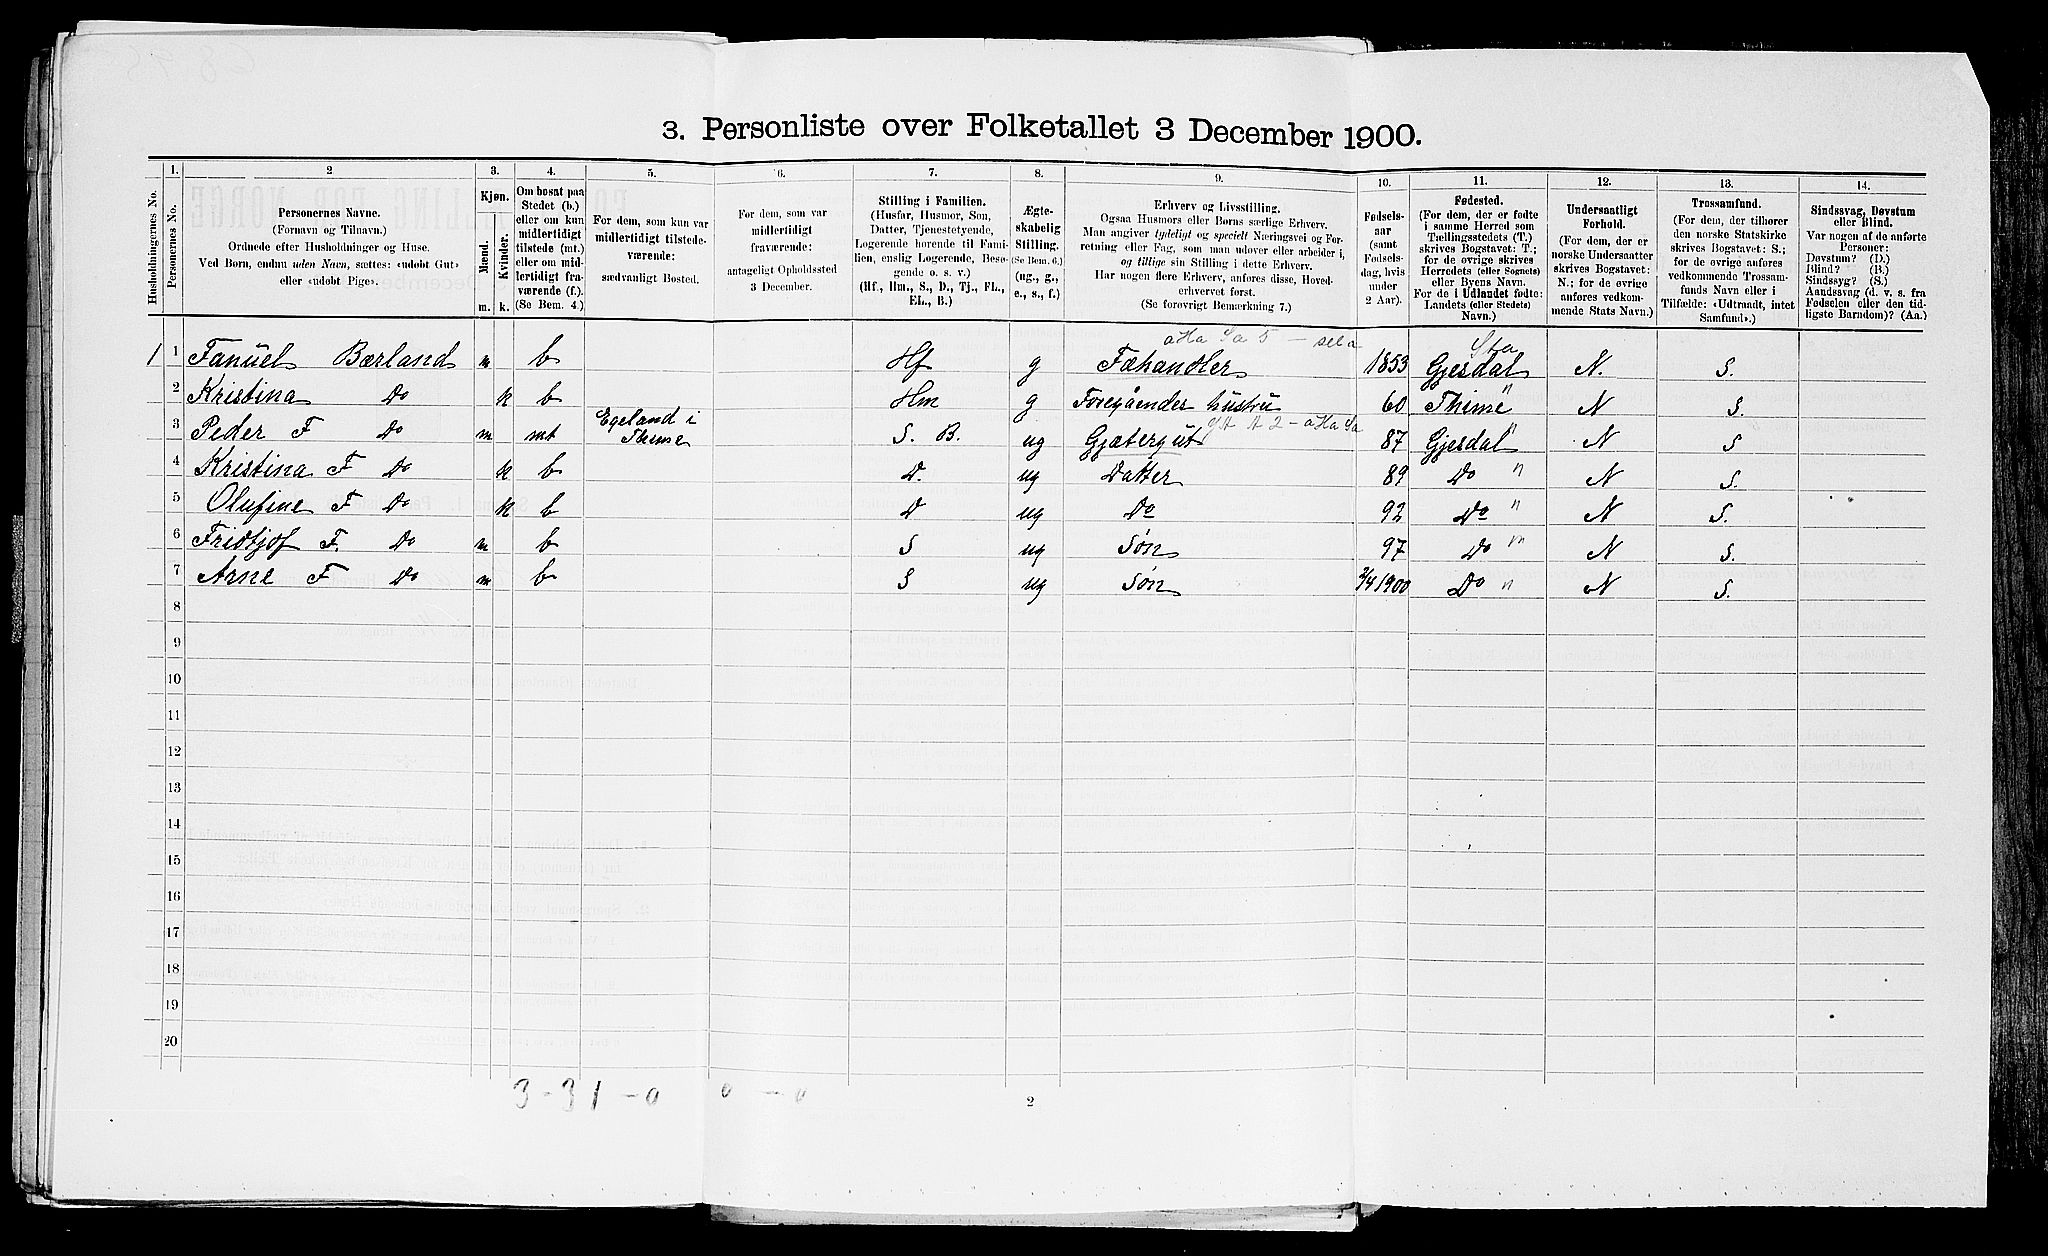 3. Personliste over Folketallet 3 December 1900.
Husholdningernes No.
1.
Personernes No.
2
Personernes Navne.
(Fornavn og Tilnavn.)
Ordnede efter Husholdninger og Huse.
Ved Børn, endnu uden Navn, sættes: «udøbt Gut»
eller «udøbt Pige».
3.
Kjøn.
Mænd.
Kvinder.
m. k.
4.
Om bosat paa
Stedet (b.)
eller om kun
midlertidigt
tilstede (mt.)
eller om mid-
lertidigt fra-
værende (f.).
(Se Bem. 4.)
5.
For dem, som kun var
midlertidigt tilstede-
værende:
sædvanligt Bosted.
6.
For dem, som var
midlertidigt
fraværende:
antageligt Opholdssted
3 December.
7.
Stilling i Familien.
(Husfar, Husmor, Søn,
Datter, Tjenestetyende,
Logerende hørende til Fami-
lien, enslig Logerende, Besø-
gende o. s. v.)
(Hf., Hm., S., D., Tj., FL.,
EL., B.)
8.
Ægte-
skabelig
Stilling.
(Se Bem. 6.)
(ug., g.,
e., s., f.)
9.
Erhverv og Livsstilling.
Ogsaa Husmors eller Børns særlige Erhverv.
Man angiver tydeligt og specielt Næringsvei og For-
retning eller Fag, som man udøver eller arbeider i,
og tillige sin Stilling i dette Erhverv.
Har nogen flere Erhverv, anføres disse, Hoved-
erhvervet først.
(Se forøvrigt Bemærkning 7.)
10.
Fødsels-
aar
(samt
Fødsels-
dag, hvis
under
2 Aar).
11.
Fødested.
(For dem, der er fødte
i samme Herred som
Tællingsstedets (T.)
skrives Bogstavet: T.;
for de øvrige skrives
Herredets (eller Sognets)
eller Byens Navn.
For de i Udlandet fødte:
Landets (eller Stedets)
Navn.)
12.
Undersaatligt
Forhold.
(For dem, der er
norske Undersaatter
skrives Bogstavet:
N.; for de øvrige
anføres vedkom-
mende Stats Navn.)
13.
Trossamfund.
(For dem, der tilhører
den norske Statskirke
skrives Bogstavet: S.;
for de øvrige anføres
vedkommende Trossam-
funds Navn eller i
Tilfælde: «Udtraadt, intet
Samfund».)
14.
Sindssvag, Døvstum
eller Blind.
Var nogen af de anførte
Personer:
Døvstum? (D.)
Blind? (B.)
Sindssyg? (S.)
Aandssvag (d. v. s. fra
Fødselen eller den tid-
ligste Barndom)? (Aa.)
1 1 Fanuel Bærland m b Hf g Fæhandler 1853 Gjesdal N. S.
2 Kristina Do k b Hm g Foregåendes hustru 60 Thime " N S.
3 Peder F Do m mt Egeland i Thime S. B. ug Gjætergut 87 Gjesdal " N S
4 Kristina F Do k b D. ug Datter 89 Do " N S.
5 Olufine F Do k b D ug Do 92 Do " N S.
6 Fridtjof F. Do m b S ug Søn 97 Do " N S.
7 Arne F Do m b S ug Søn 2/4 1900 Do " N S.
8
9
10
11
12
13
14
15
16
17
18
19
20
3-31-0 0-0
2